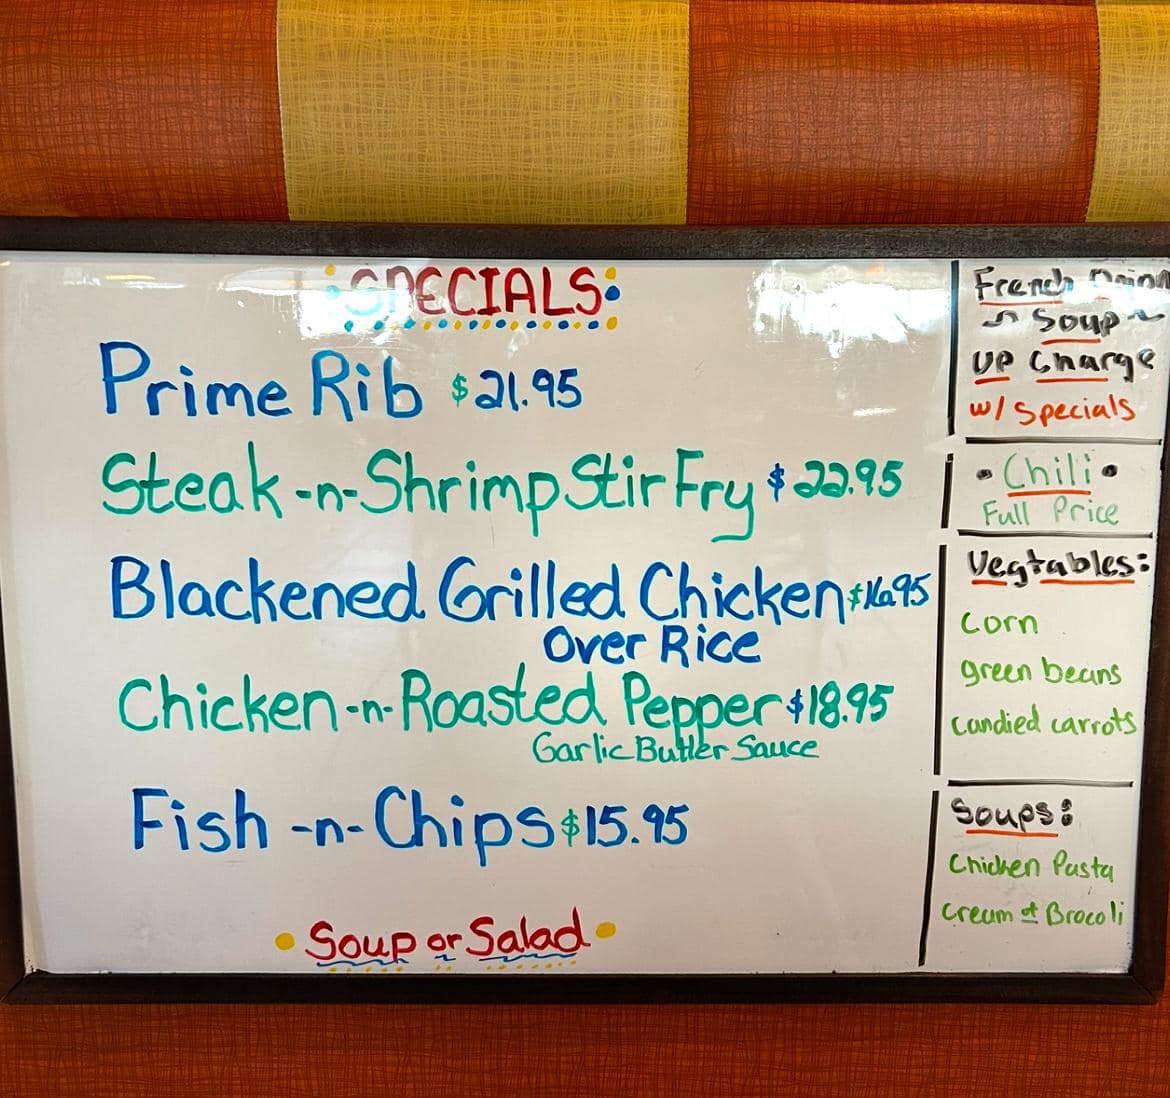 SPECIALS:
Prime Rib $21.95
Steak -n- Shrimp Stir Fry $22.95
Blackened Grilled Chicken $16.95
Over Rice
Chicken -n- Roasted Pepper $18.95
Garlic Butter Sauce
Fish -n- Chips $15.95
• Soup or Salad •
French Onion
~ Soup ~
UP Charge
w/ Specials
• Chili •
Full Price
Vegtables:
corn
green beans
candied carrots
Soups:
Chicken Pasta
Cream of Brocoli